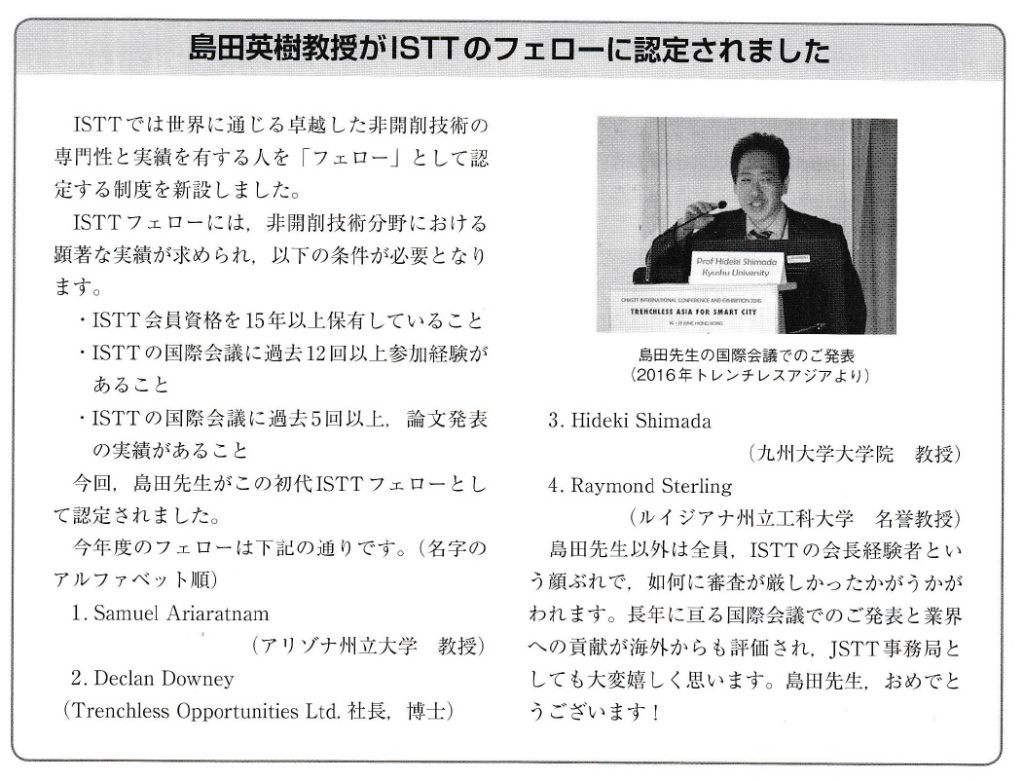 島田英樹教授がISTTのフェローに認定されました
ISTTでは世界に通じる卓越した非開削技術の
専門性と実績を有する人を「フェロー」として認
定する制度を新設しました。
ISTTフェローには，非開削技術分野における
顕著な実績が求められ，以下の条件が必要となり
ます。
・ISTT会員資格を15年以上保有していること
・ISTTの国際会議に過去12回以上参加経験が
あること
・ISTTの国際会議に過去5回以上，論文発表
の実績があること
今回，島田先生がこの初代ISTTフェローとし
て認定されました。
今年度のフェローは下記の通りです。（名字の
アルファベット順）
1. Samuel Ariaratnam
（アリゾナ州立大学　教授）
2. Declan Downey
（Trenchless Opportunities Ltd. 社長，博士）
Prof Hideki Shimada
Kyushu University
CHKSTT INTERNATIONAL CONFERENCE AND EXHIBITION 2016
TRENCHLESS ASIA FOR SMART CITY
島田先生の国際会議でのご発表
（2016年トレンチレスアジアより）
3. Hideki Shimada
（九州大学大学院　教授）
4. Raymond Sterling
（ルイジアナ州立工科大学　名誉教授）
島田先生以外は全員，ISTTの会長経験者とい
う顔ぶれで，如何に審査が厳しかったかがうかが
われます。長年に亘る国際会議でのご発表と業界
への貢献が海外からも評価され，JSTT事務局と
しても大変嬉しく思います。島田先生，おめでと
うございます！